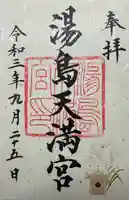 奉拝
湯島天満宮
令和三年九月二十五日